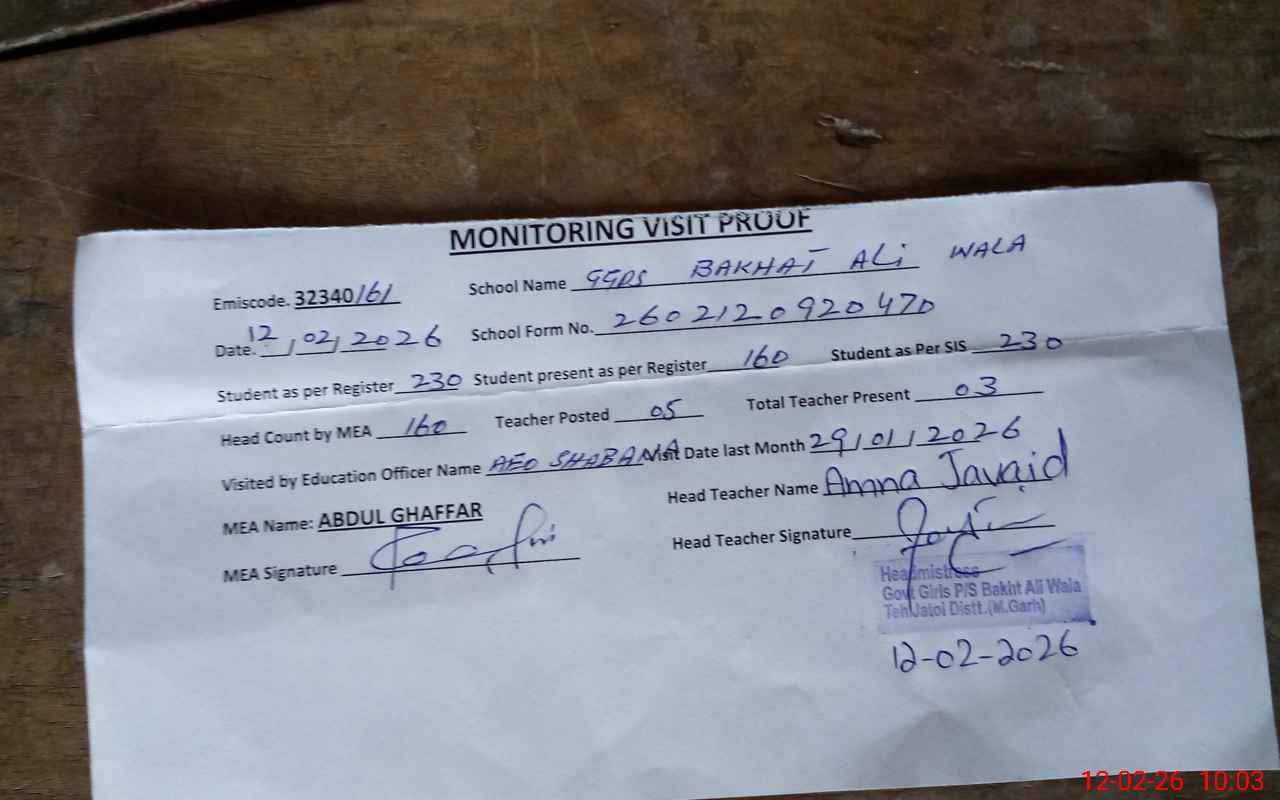 MONITORING VISIT PROOF
Emiscode. 32340/161 School Name GGPS BAKHAT ALi WALA
Date. 12/02/2026 School Form No. 2602120920470
Student as per Register 230 Student present as per Register 160 Student as Per SIS 230
Head Count by MEA 160 Teacher Posted 05 Total Teacher Present 03
Visited by Education Officer Name AEO SHABANA Visit Date last Month 29/01/2026
MEA Name: ABDUL GHAFFAR Head Teacher Name Amna Javaid
MEA Signature Head Teacher Signature
Headmistress
Govt Girls P/S Bakht Ali Wala
Teh Jatoi Distt.(M.Garh)
12-02-2026
12-02-26 10:03